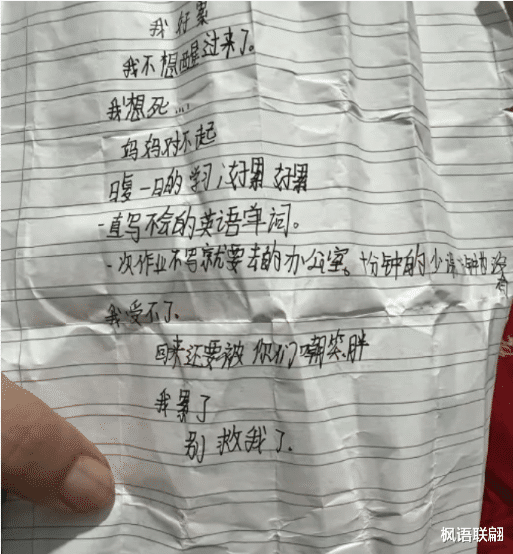 我好累
我不想醒过来了。
我想死...
妈妈对不起
日复一日的学习,好累 好累
一直写不会的英语单词。
一次作业不写就要去的办公室。十分钟的少 钟也没有
我受不了.
回来还要被你们嘲笑胖
我累了
别救我了.
枫语联翩